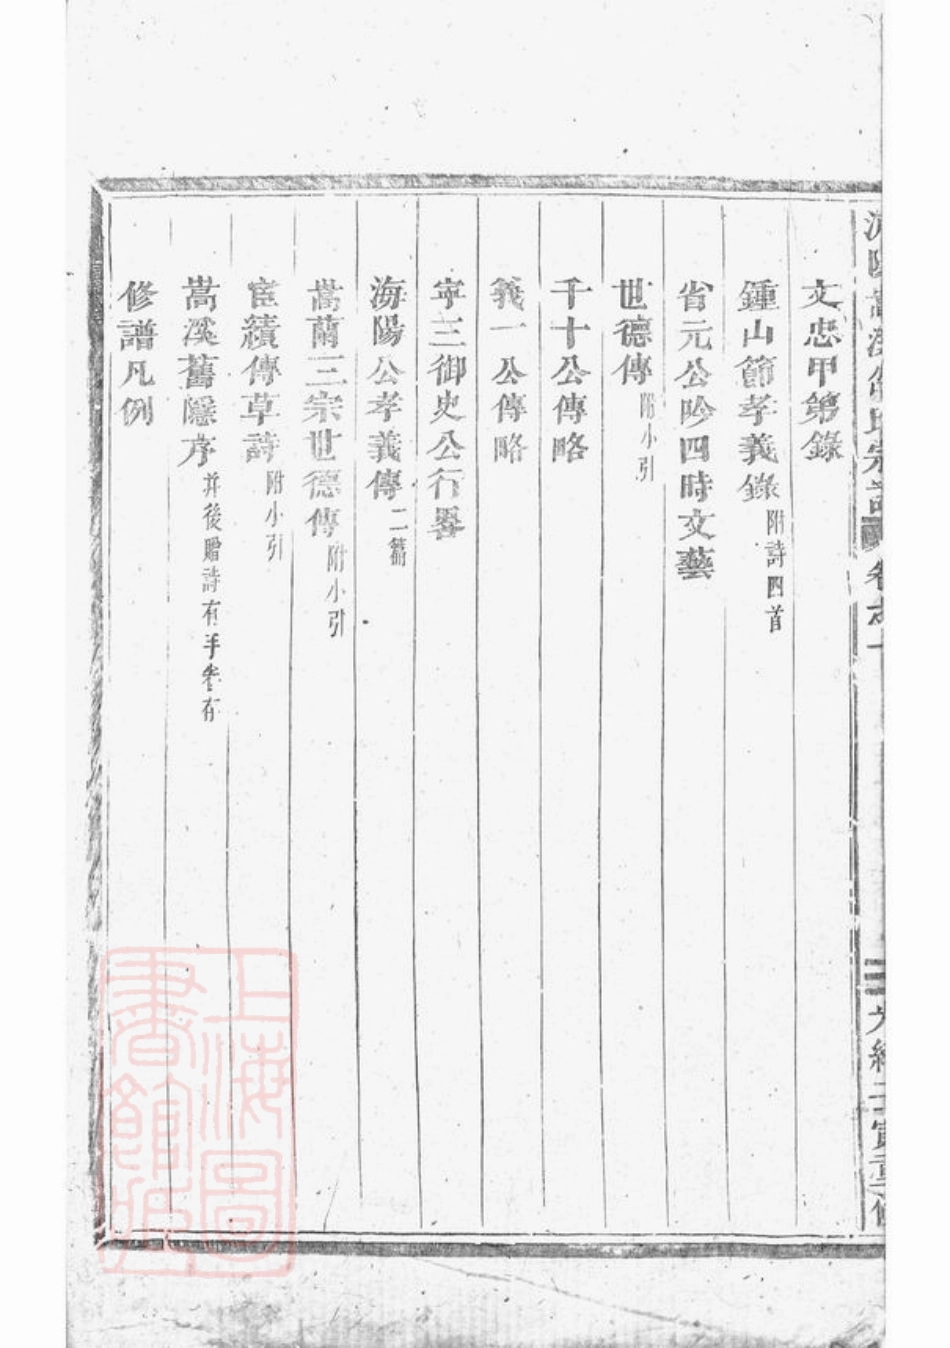 嵩溪 氏宗譜 卷之一 光緒壬寅重修
文忠甲第錄
鍾山節孝義錄 附詩四首
省元公吟四時文藝
世德傳 附小引
千十公傳略
義一公傳略
寧三御史公行畧
海陽公孝義傳 二篇
嵩蘭三宗世德傳 附小引
宦績傳草詩 附小引
嵩溪舊隱序 并後贈詩有手卷存
修譜凡例
上海圖書館藏